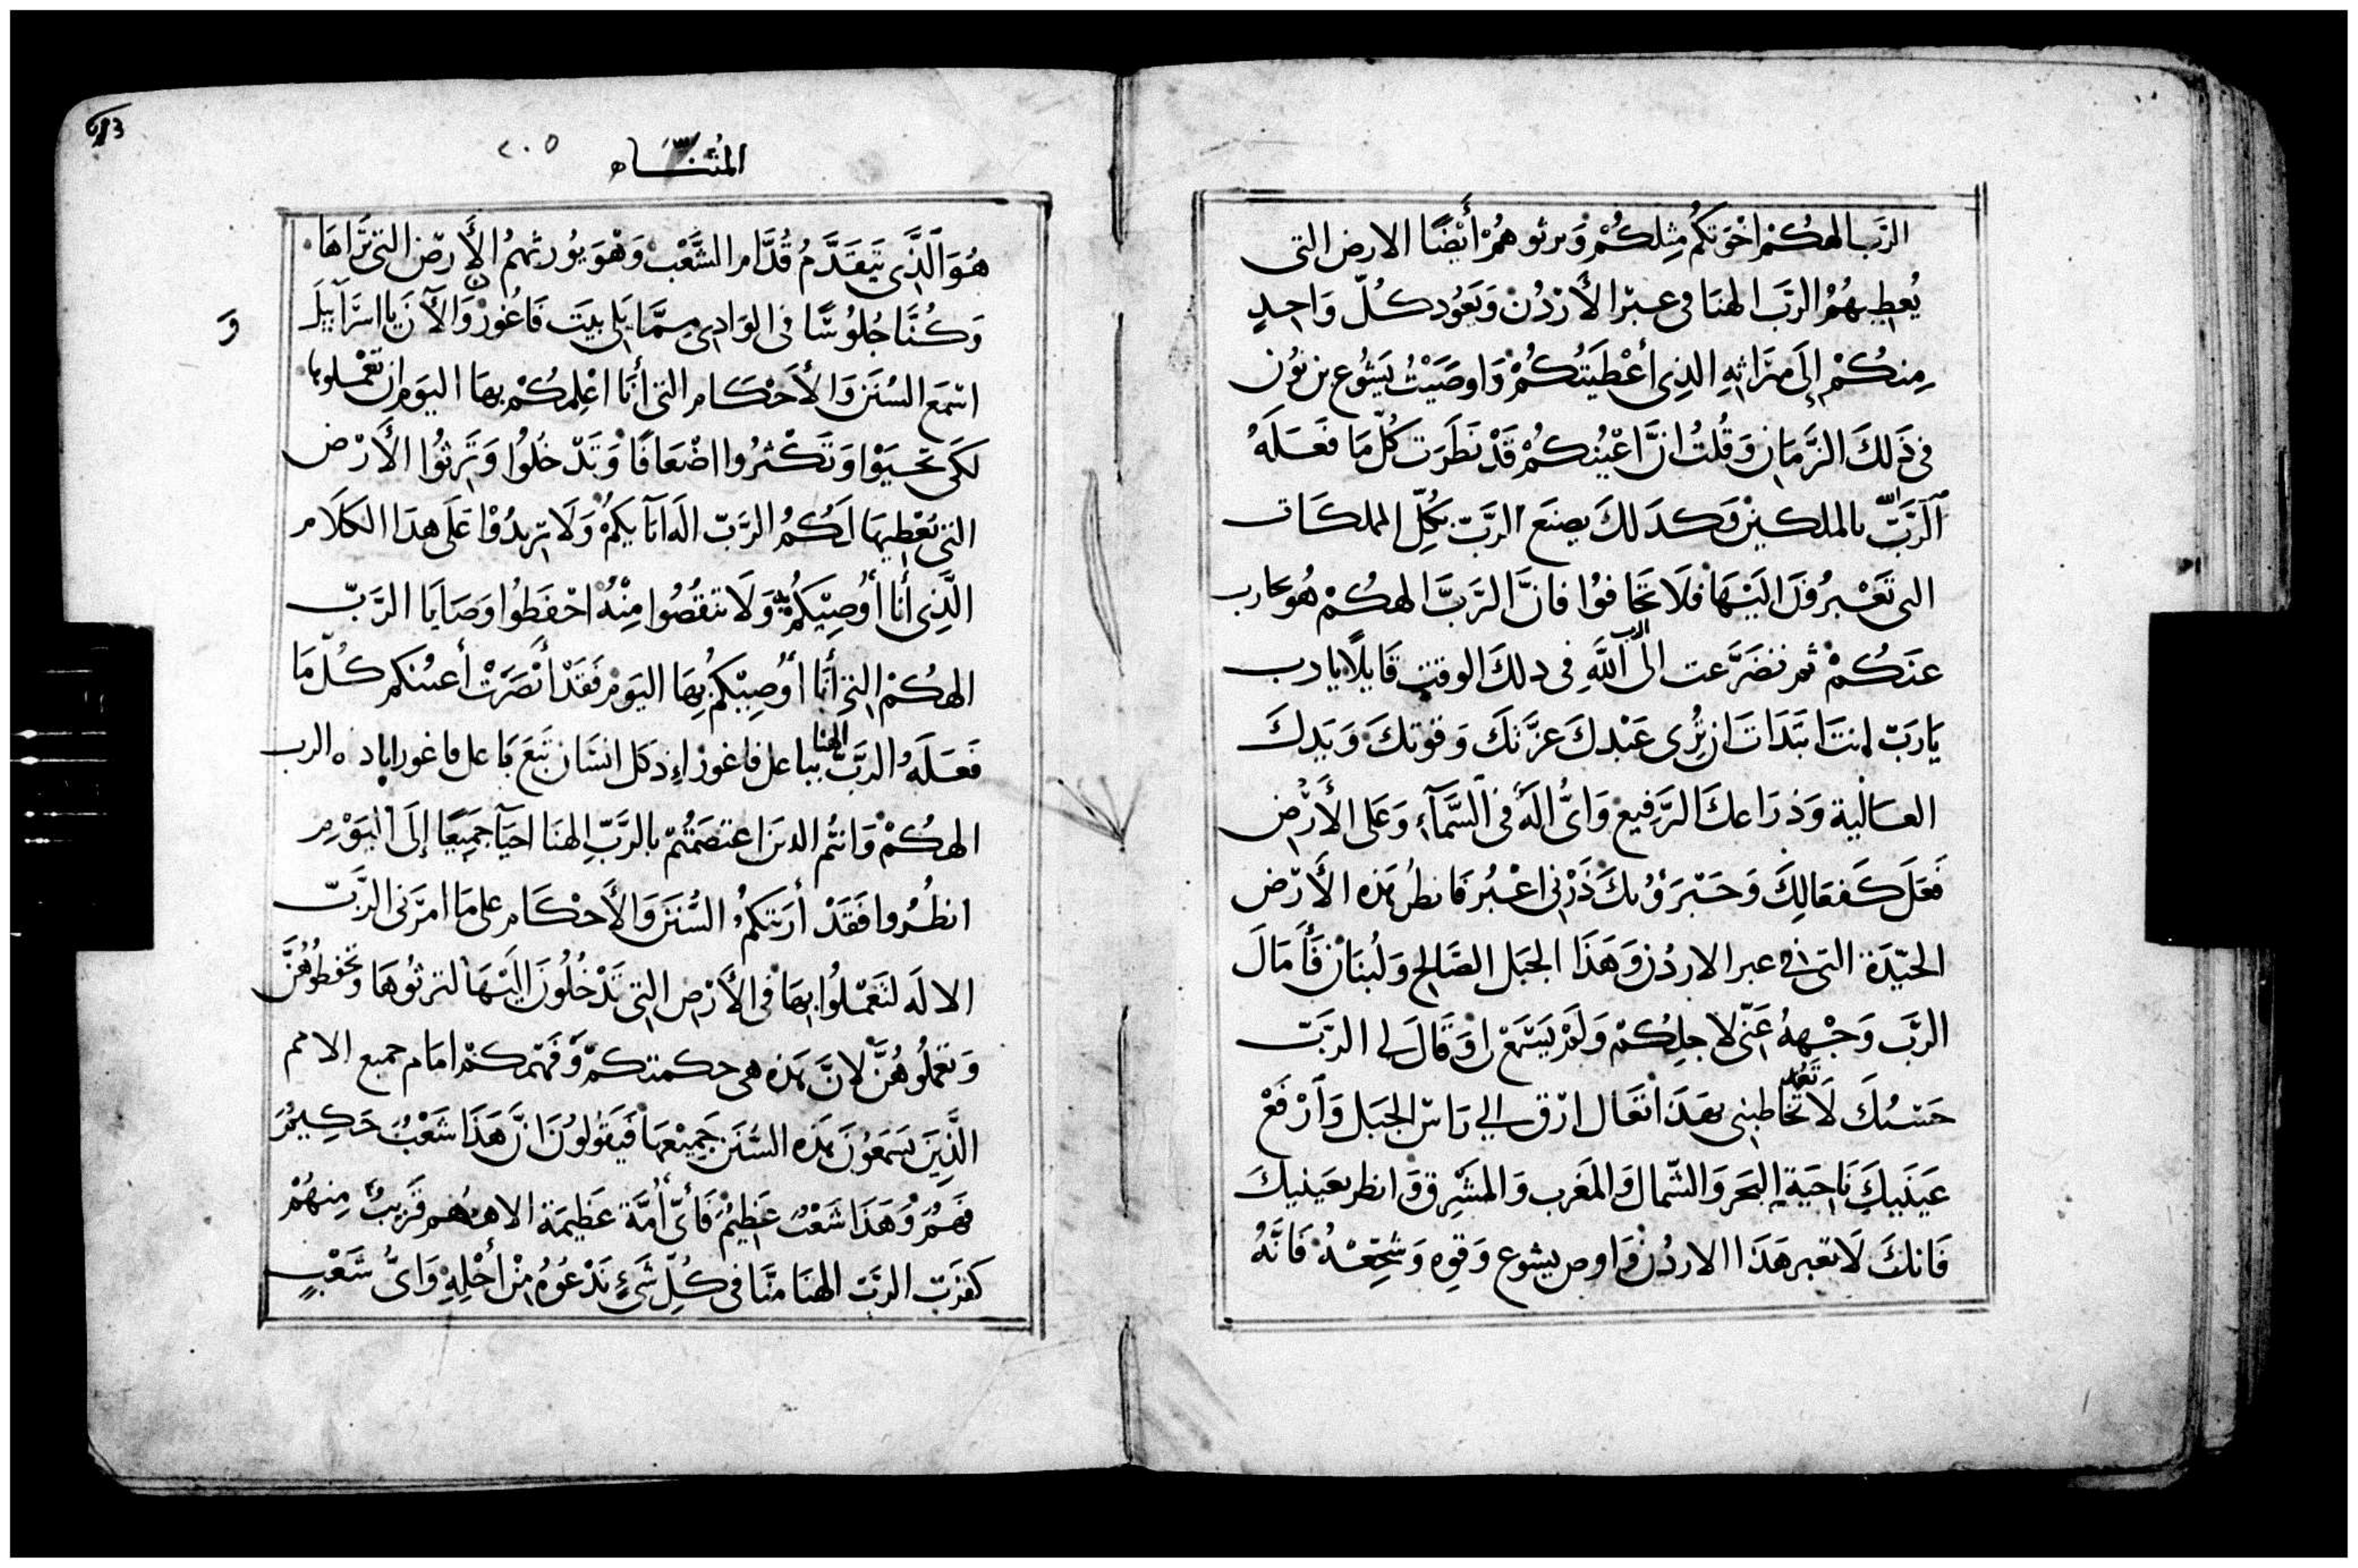 الرَب الهكُمْ اخْوَتكُم مِثِلكُمْ وَيرثوهُمْ أيْضًا الارض التى
يُعطِيهُمْ الرَبّ الهنَا فى عبْر الأرْدُنْ وَيَعُود كُلّ وَاحِدٍ
مِنكُمْ إلَى مِيرَاثِهِ الذِى أعْطَيَتُكُمْ وَاوصَيْتُ يَشُوع بن نُون
فى ذَلكَ الزَّمَانِ وَقُلتُ انَّ اعْيُنكُمْ قَدْ نَظَرَت كُلّ مَا فَعَلَهُ
الرَّبّ الله بالملكين وَكدَلكَ يصنَع الرَّبّ بِكُلّ المملكَات
التى تَعْبرُونَ اليْهَا فلَا تَخَافوُا فانَّ الرَّبَّ الهكُمْ هُو يحارب
عنَكُمْ ثم تضرَّعت الى الرب اللَّهِ فى دلكَ الوقت قَايِلًا يا رب
يَارَبّ انتَ ابتَدَاتَ ان تُرى عَبْدكَ عزَّتكَ وَقوتكَ وَيَدكَ
العَالية وَذرَاعكَ الرَّفِيع وَاىُّ الَهُ فى السَّمَآءِ وَعَلى الأَرْضِ
فَعَلَ كَفعَالِكَ وَجَبَرؤتكَ ذَرْنى اعْبُر فَانظُر هَذه الأَرْض
الجيّدَة التى فى عبر الاردُن وَهَذَا الجبَل الصَالح وَلُبنَان فَأَمَالَ
الرَّب وَجْههُ عَنّى لاجلِكُمْ وَلَمْ يَسْتَمِعْ لى وَقَالَ لى الرَّبّ
حَسْبُكَ لَا تَعُد تُخَاطبنى بهَذَا تعَال ارْق الى رَاسْ الجَبَل وَارْفَعْ
عَينَيكَ نَاحِيَةِ البَحَر وَالشّمال وَالمَغرب وَالمشَرِق وَانظر بعَينيكَ
فَانكَ لَا تعبر هَذَا الاردُن وَاوصِ يشوع وَقوِه وَشَجّعْهُ فَانَّهُ
683
٢٠٥
المُثنَّاه
هُوَ الَّذِى يَتقَدَّمُ قُدَّام الشَّعْب وَهْوَ يُورثهمُ الأَرض التى تَرَاهَا
وَكُنَّا جُلوُسًا فى الوَادِى ممَّا يَلى بيَت فَاغُورْ وَالآنَ يا اسرَآييلَ
وَ
اسْمَع السُنَن وَالأَحْكَام التى أنَا اعْلِمكُمْ بهَا اليَومَ ان تعْمَلوا بها
لكَى تحيَوْا وَتَكْثرُوا اضْعَافًا وَتَدْخُلوُا وَتَرِثوُا الأَرْض
التى يُعْطِيهَا لَكُمُ الرَّبّ الَه ابَآيكُم وَلَا تزيدُوْا عَلَى هذَا الكَلَام
الَّذِى أَنَا أوُصِيْكمُ وَلَا تنقُصُوا مِنْهُ احْفَظوُا وَصَايَا الرَّبّ
الهكُمْ التى أنَا أوُصِيْكمُ بِهَا اليَوم فَقَدْ أبْصَرَتْ أعينُكم كُلّ مَا
فَعَلَهُ الرَّبّ الهنا ببَاعل فاغورْ اِذ كَل انسَان تبَعَ بَاعل فاغور اباده الرب
الهكُمْ وَانتُم الدين اعتصَمَتُمْ بالرَّبِّ الهنَا احيَآ جميعًا إلَى اليَوْمِ
انظُروا فَقَدْ أرَيتكمُ السُّنَن وَالأَحْكَام على مَا امرَنى الرَّبّ
الالَه لتَعْمَلُوا بهَا فى الأَرْضِ التى تَدْخُلُونَ اليْهَا لترثوُهَا وَتحفظوُهُنَّ
وَتعملُوهُنَّ لانَّ هَذِه هى حكمتكمْ وَفَهْمكمْ امَام جميع الامم
الَّذِينَ يَسمَعوُن هَذه السُنَن جَمِيْعهَا فَيَقَولوُنَ انَّ هَذَا شَعْبٌ حَكِيمٌ
فهمٌ وَهَذَا شَعْبٌ عَظِيْمٌ فَأىّ أمَّة عَظِيمَة الاههُم قَريبٌ مِنهُمْ
كقرَب الرَّب الهنَا منَّا فى كُلّ شَىءٍ نَدْعُوهُ مِنْ أجْلِهِ وَاىُّ شَعْبٍ